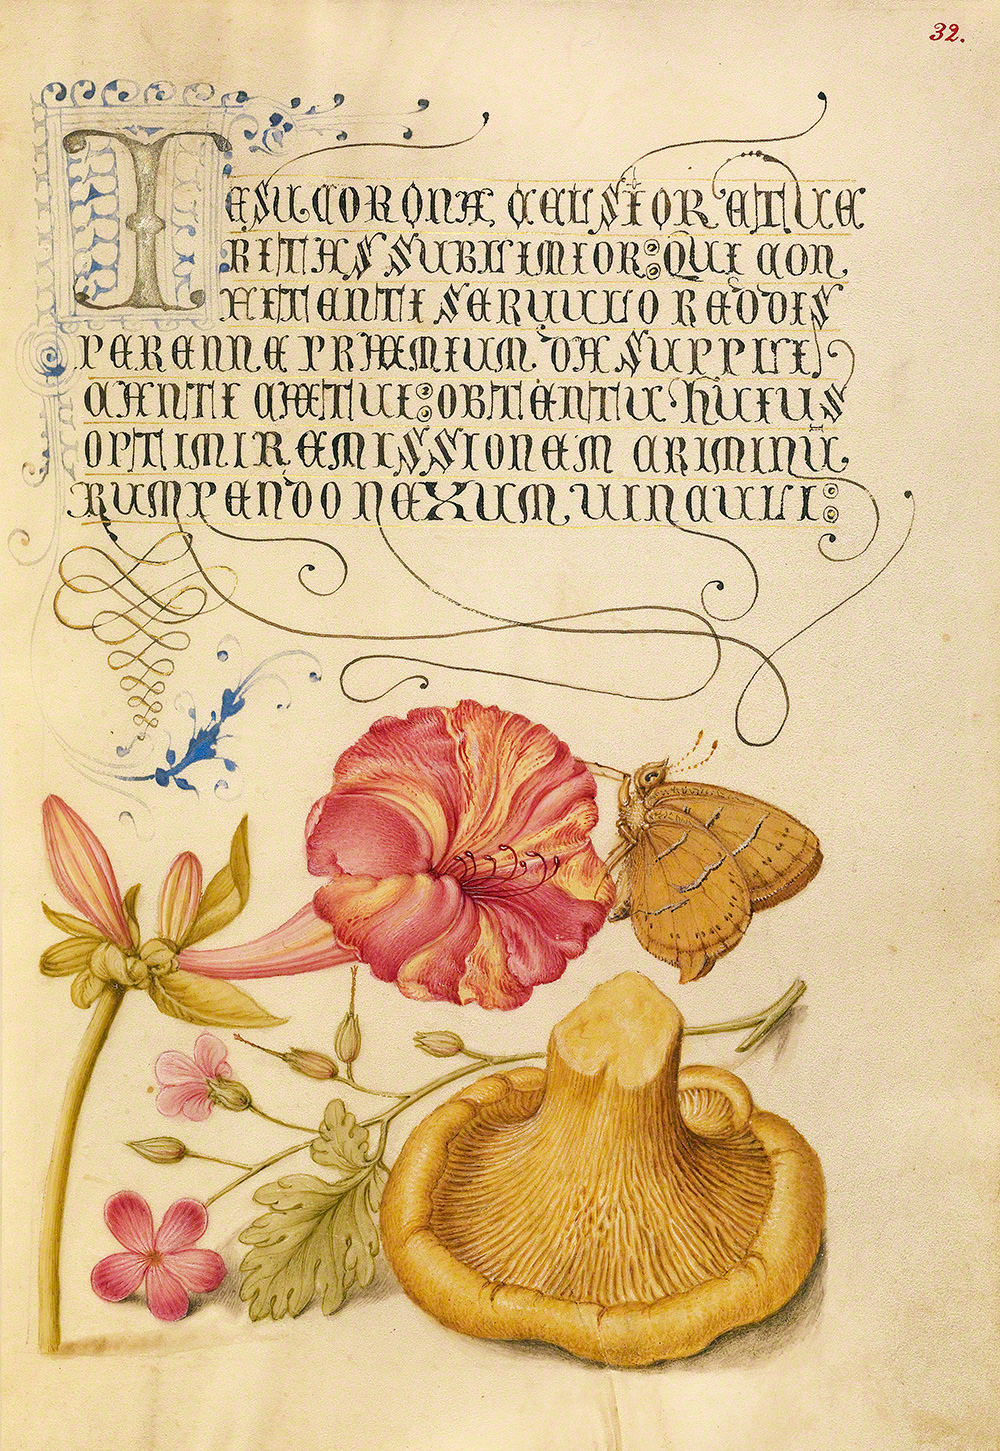 32.
IESU CORONÆ CELSIOR ET UE
RITAS SUBLIMIOR: QUI CON
FITENTI SERUULO REDDIS
PERENNE PRÆMIUM. DA SUPPLI
CANTI CÆTUI: OBTENTU HUIUS
OPTIMI REMISSIONEM CRIMINŨ
RUMPENDO NEXUM UINCULI: